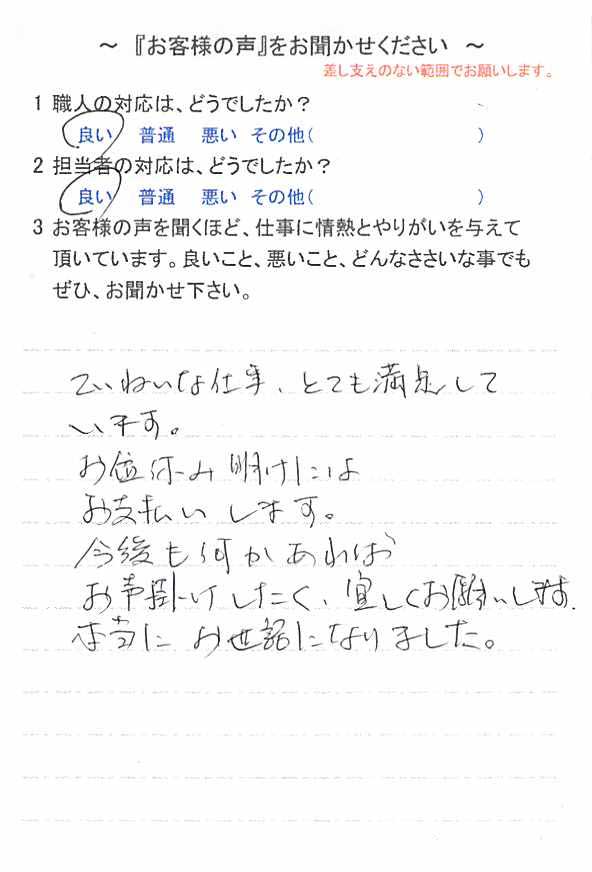 ～ 『お客様の声』をお聞かせください ～
差し支えのない範囲でお願いします。
1 職人の対応は、どうでしたか？
良い 普通 悪い その他( )
2 担当者の対応は、どうでしたか？
良い 普通 悪い その他( )
3 お客様の声を聞くほど、仕事に情熱とやりがいを与えて
頂いています。良いこと、悪いこと、どんなささいな事でも
ぜひ、お聞かせ下さい。
ていねいな仕事、とても満足して
います。
お休み明けには
お支払いします。
今後も何かあれば
お声掛けしたく、宜しくお願いします.
本当に お世話になりました。